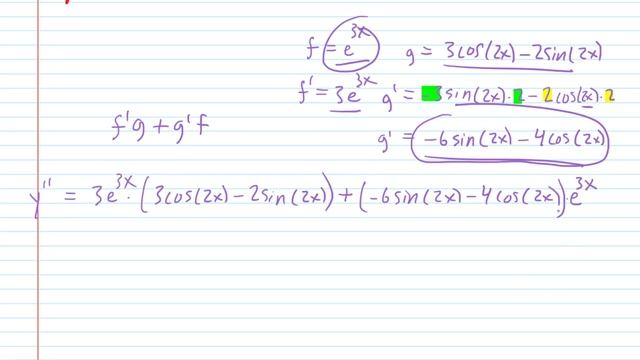 f = e^{3x} g = 3cos(2x) - 2sin(2x)
f' = 3e^{3x} g' = -3sin(2x)·2 - 2cos(2x)·2
f'g + g'f
g' = -6sin(2x) - 4cos(2x)
y'' = 3e^{3x}·(3cos(2x) - 2sin(2x)) + (-6sin(2x) - 4cos(2x))·e^{3x}